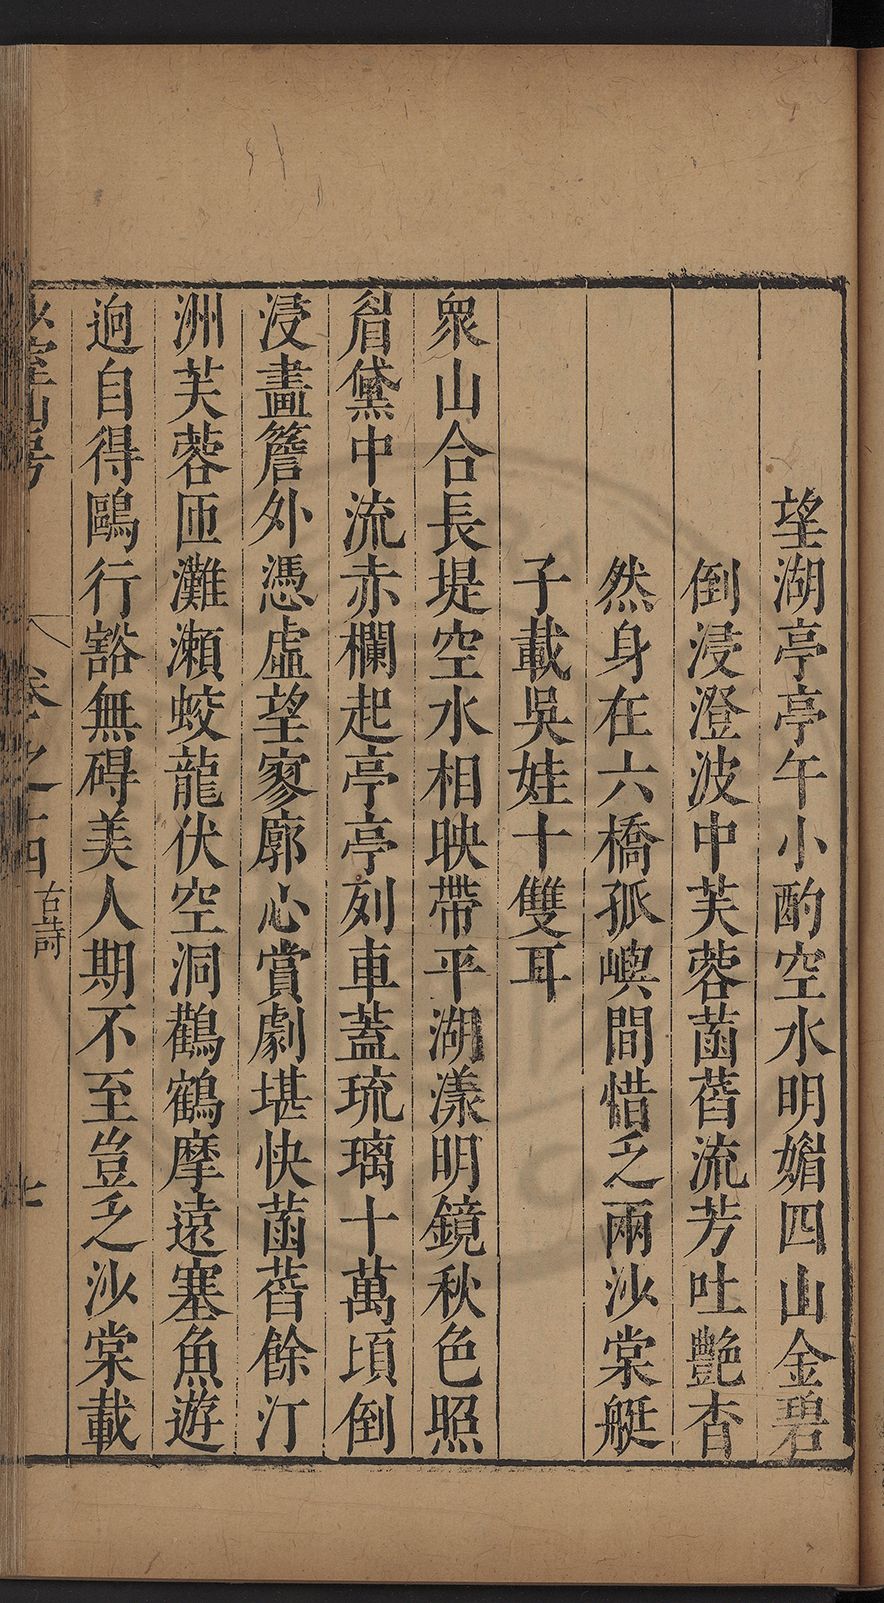 望湖亭亭午小酌空水明媚四山金碧
倒浸澄波中芙蓉菡萏流芳吐艷杳
然身在六橋孤嶼間惜乏兩沙棠艇
子載吳娃十雙耳
衆山合長堤空水相映帶平湖漾明鏡秋色照
眉黛中流赤欄起亭亭列車蓋琉璃十萬頃倒
浸畫簷外憑虛望寥廓心賞劇堪快菡萏餘汀
洲芙蓉匝灘瀬蛟龍伏空洞鸛鶴摩遠塞魚遊
逈自得鷗行豁無碍美人期不至豈乏沙棠載
山房
卷之十四
古詩
七